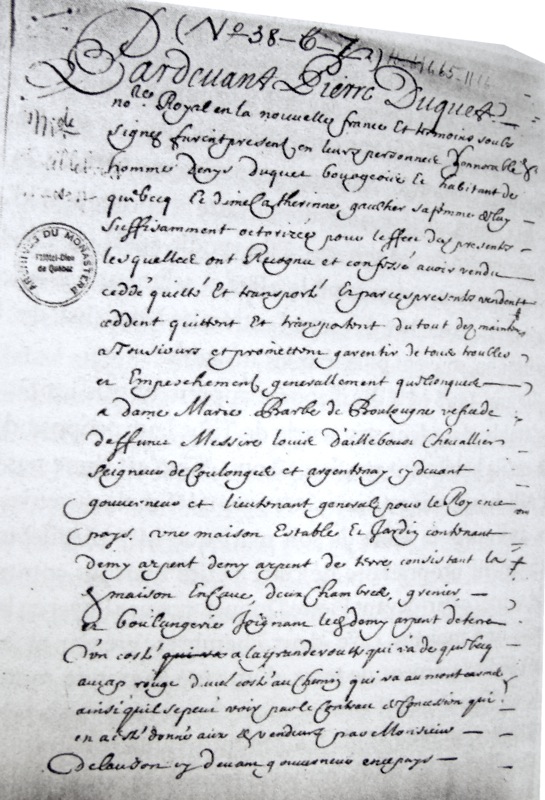 (No 38 - 6 -
Pardevant Pierre Duquet
no.re Royal en la nouvelle france Et temoins soubs
signez furent present en leurs personnes honnorable
homme Denys duquet bourgeois Et habitant de
quebecq Et dme Catherinne gaultier sa femme de luy
suffisamment octorizée pour leffect des presentes
lesquelles ont Recognu et confessé avoir vendu
ceddé quitté Et transporté Et par ces presentes vendent
ceddent quittent Et transportent du tout dez maintent
a Tousiours et promettent garentir de tous troubles
et Empeschement generallement quelconques
a dame Marie Barbe de Boulogne vefve de
deffunct Messire louis dailleboust Chevallier
seigneur de Coulonges et argentenay cy devant
gouverneur et lieutenant general pour le Roy en ce
pays. une maison Estable Et Jardin contenant
demy arpent demy arpent de terre consistant la
maison En cave deux Chambres, grenier
et boulangerie Joignant led demy arpent de terre
d'un costé qui va a la grande routte qui va de quebecq
au cap rouge d'autre costé au Chemin qui va au mont carmel
ainsi quil se peut voir par le Contract de Concession qui
en a esté donné aux d vendeurs par Monsieur
Delauson cy devant gouverneur en ce pays
ARCHIVES DU MONASTÈRE
l'Hôtel-Dieu
de Québec